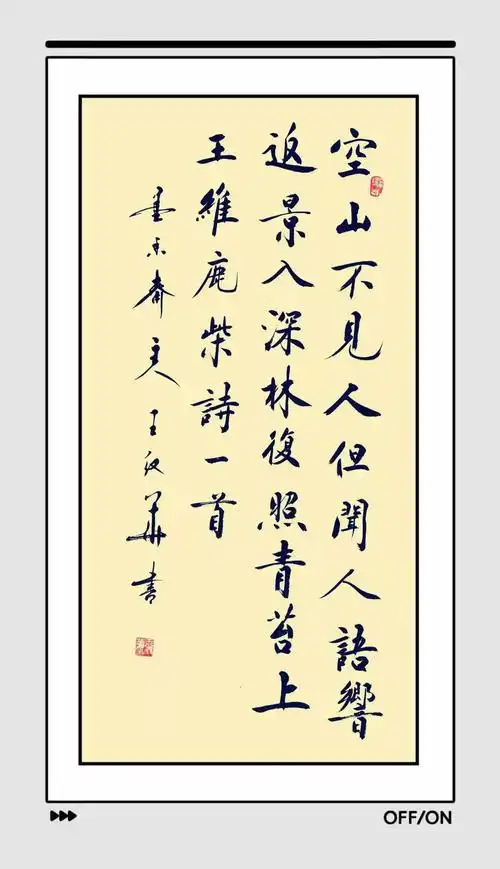 空山不見人但聞人語響
返景入深林復照青苔上
王維鹿柴詩一首
墨香齋主人王汉華書
OFF/ON